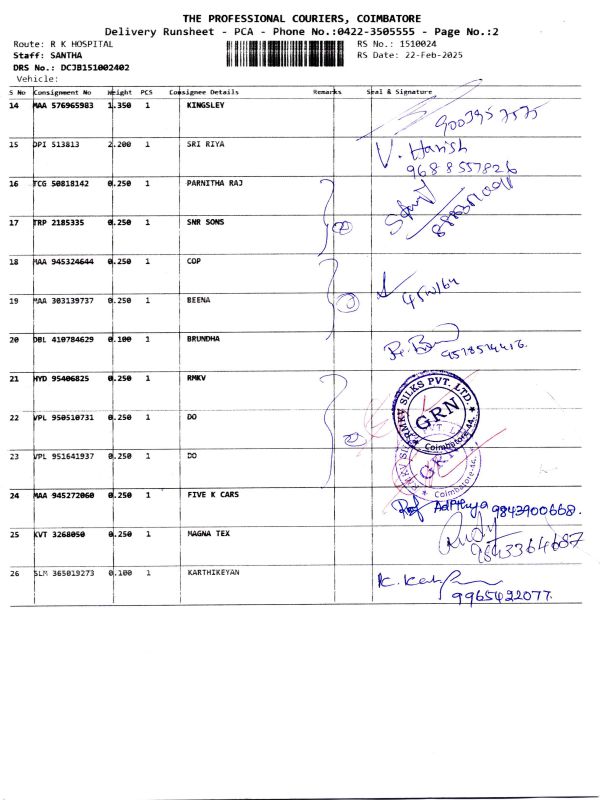 THE PROFESSIONAL COURIERS, COIMBATORE
Delivery Runsheet - PCA - Phone No.:0422-3505555 - Page No.:2
Route: R K HOSPITAL RS No.: 1510024
Staff: SANTHA RS Date: 22-Feb-2025
DRS No.: DCJB151002402
Vehicle:
S No Consignment No Weight PCS Consignee Details Remarks Seal & Signature
14 MAA 576965983 1.350 1 KINGSLEY
15 OPI 513813 2.200 1 SRI RIYA V. Harish
9688557826
16 TCG 50818142 0.250 1 PARNITHA RAJ
17 TRP 2185335 0.250 1 SNR SONS
18 MAA 945324644 0.250 1 COP
19 MAA 303139737 0.250 1 BEENA
20 DBL 410784629 0.100 1 BRUNDHA
21 HYD 95406825 0.250 1 RMKV
RMKV SILKS PVT. LTD.
GRN
Coimbatore-44.
22 VPL 950510731 0.250 1 DO
23 VPL 951641937 0.250 1 DO
GRN
Coimbatore-44.
24 MAA 945272060 0.250 1 FIVE K CARS 9843900668.
25 KVT 3268050 0.250 1 MAGNA TEX 9843364687
26 SLM 365019273 0.100 1 KARTHIKEYAN
9965422077.